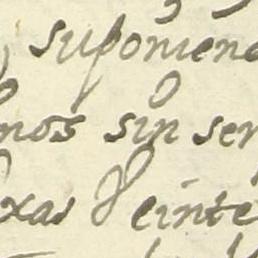 suponiend
nos sin ser
xas Veinte